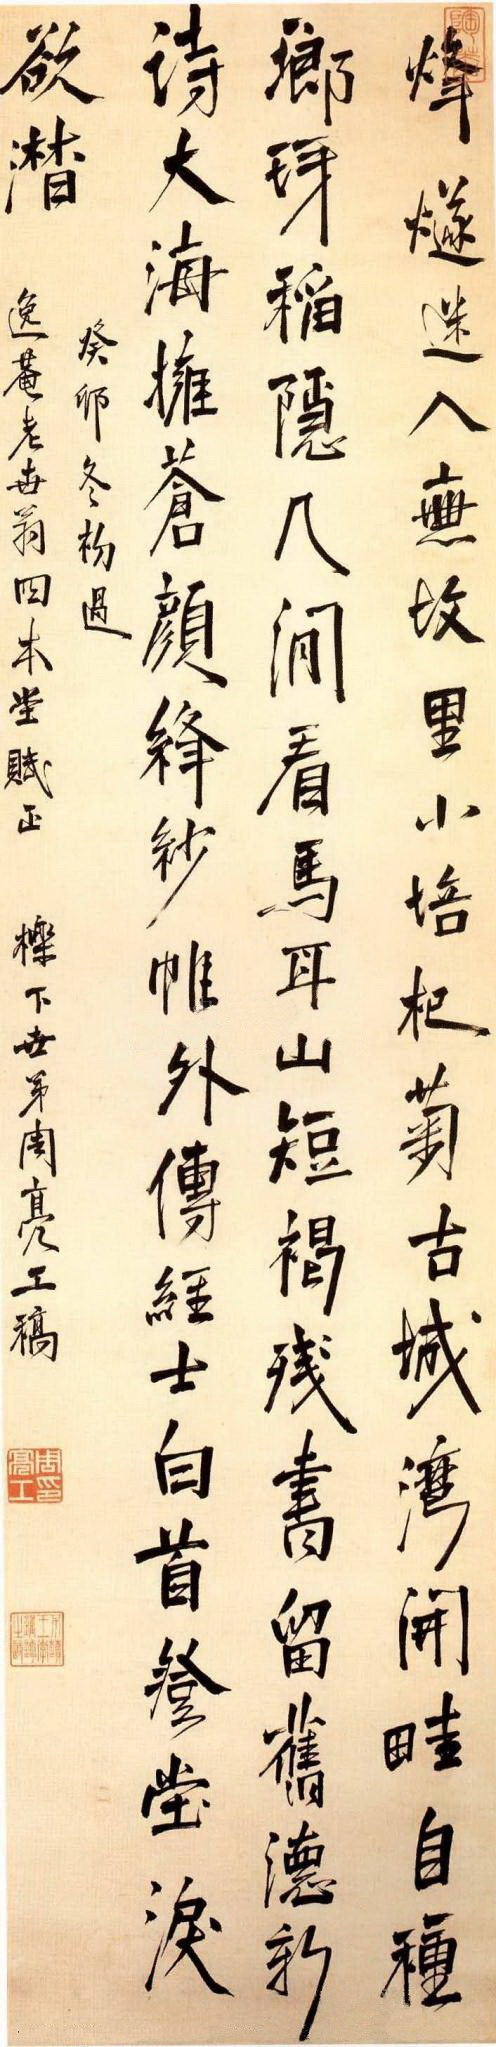 烽燧迷人蕪故里小培杞菊古城灣開畦自種
瑯琊稻隱几閒看馬耳山短褐殘書留舊德新
詩大海擁蒼顏絳紗帷外傳經士白首登堂淚
欲潸
癸卯冬杪過
逸菴老世翁四本堂賦正
櫟下世弟周亮工稿
周亮工印